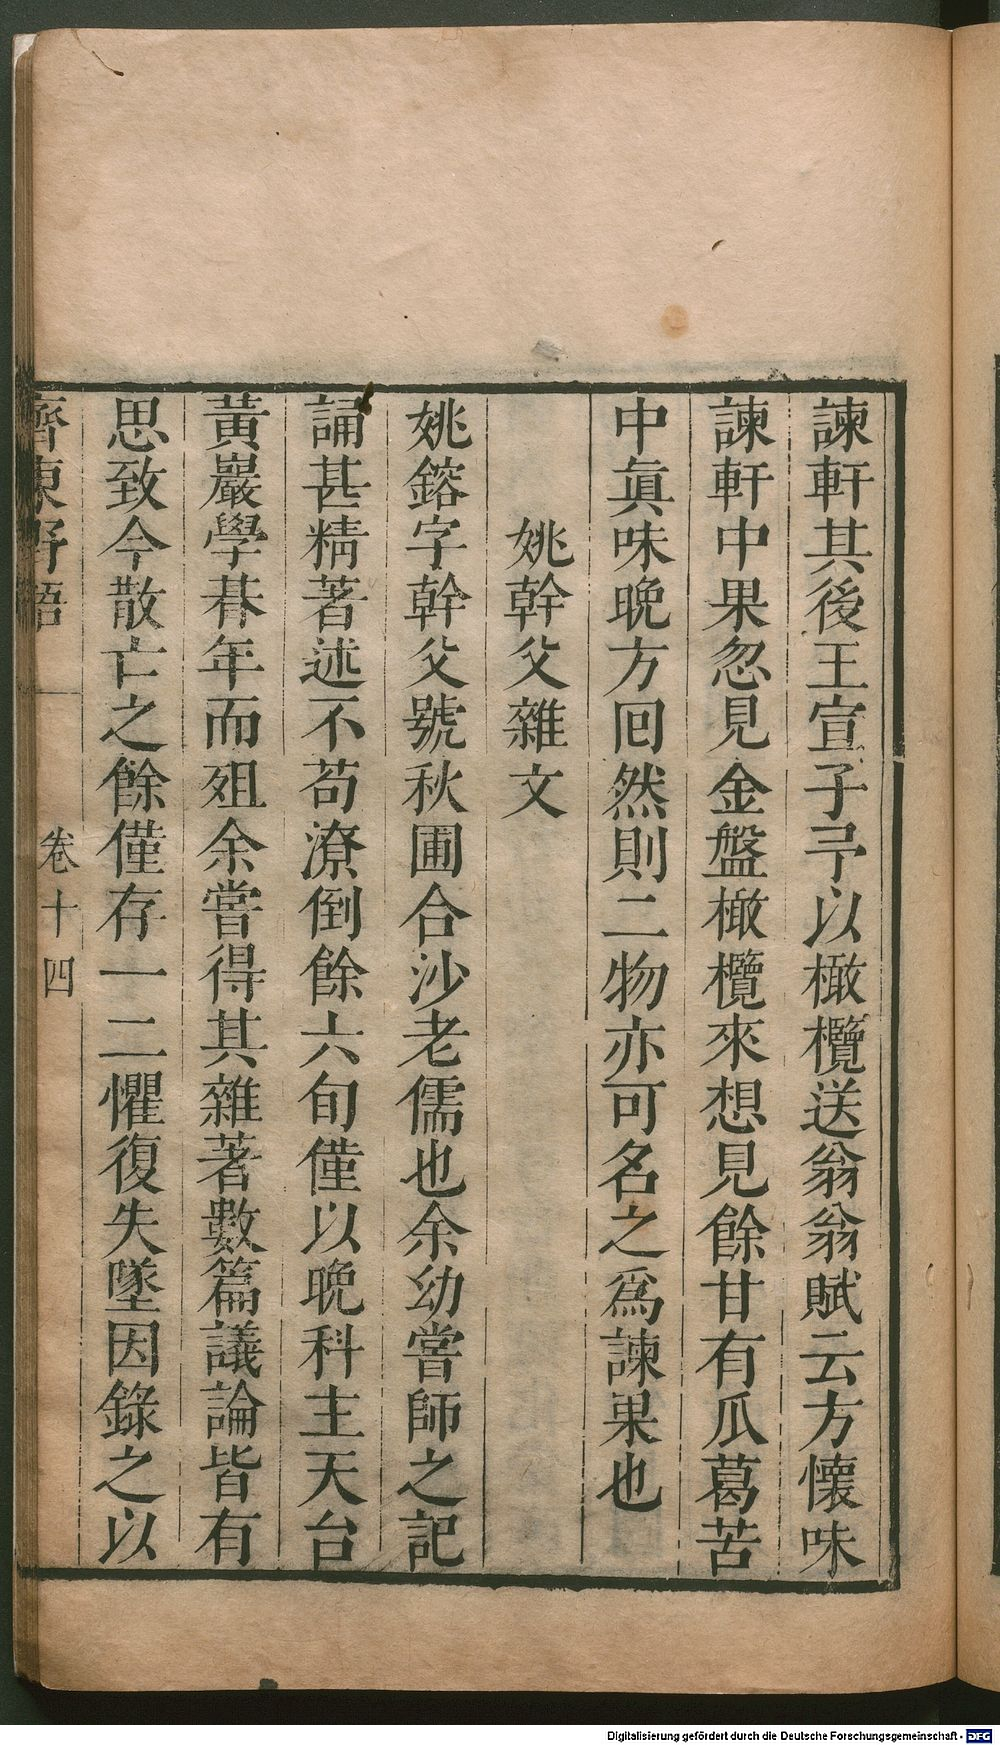 諫軒其後王宣子予以橄欖送翁翁賦云方懷味
諫軒中果忽見金盤橄欖來想見餘甘有瓜葛苦
中眞味晚方囘然則二物亦可名之爲諫果也
姚幹父雜文
姚鎔字幹父號秋圃合沙老儒也余幼嘗師之記
誦甚精著述不苟潦倒餘六旬僅以晚科主天台
黃巖學朞年而殂余嘗得其雜著數篇議論皆有
思致今散亡之餘僅存一二懼復失墜因錄之以
齊東野語
卷十四
Digitalisierung gefördert durch die Deutsche Forschungsgemeinschaft - DFG